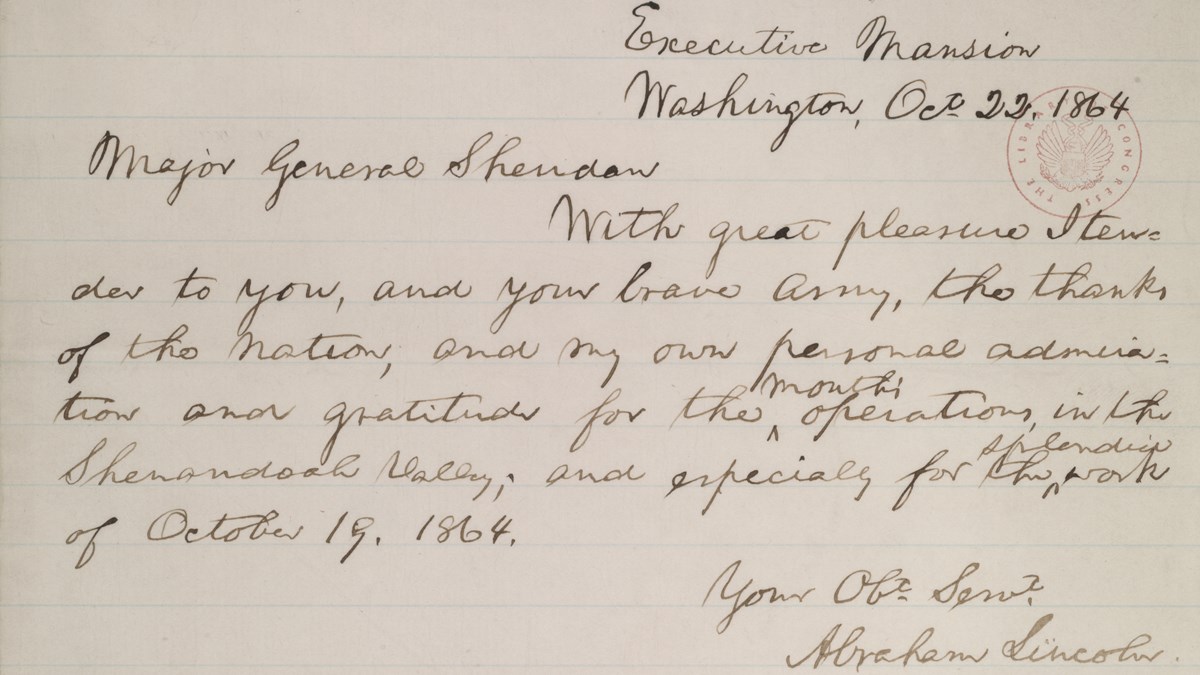 Executive Mansion
Washington, Oct. 22. 1864
THE LIBRARY CONGRESS
Major General Sheridan
With great pleasure I ten=
der to you, and your brave army, the thanks
of the Nation, and my own personal admira=
month's
tion and gratitude for the ^ operations, in the
splendid
Shenandoah Valley; and especially for the ^ work
of October 19. 1864.
Your Obt. Servt.
Abraham Lincoln.